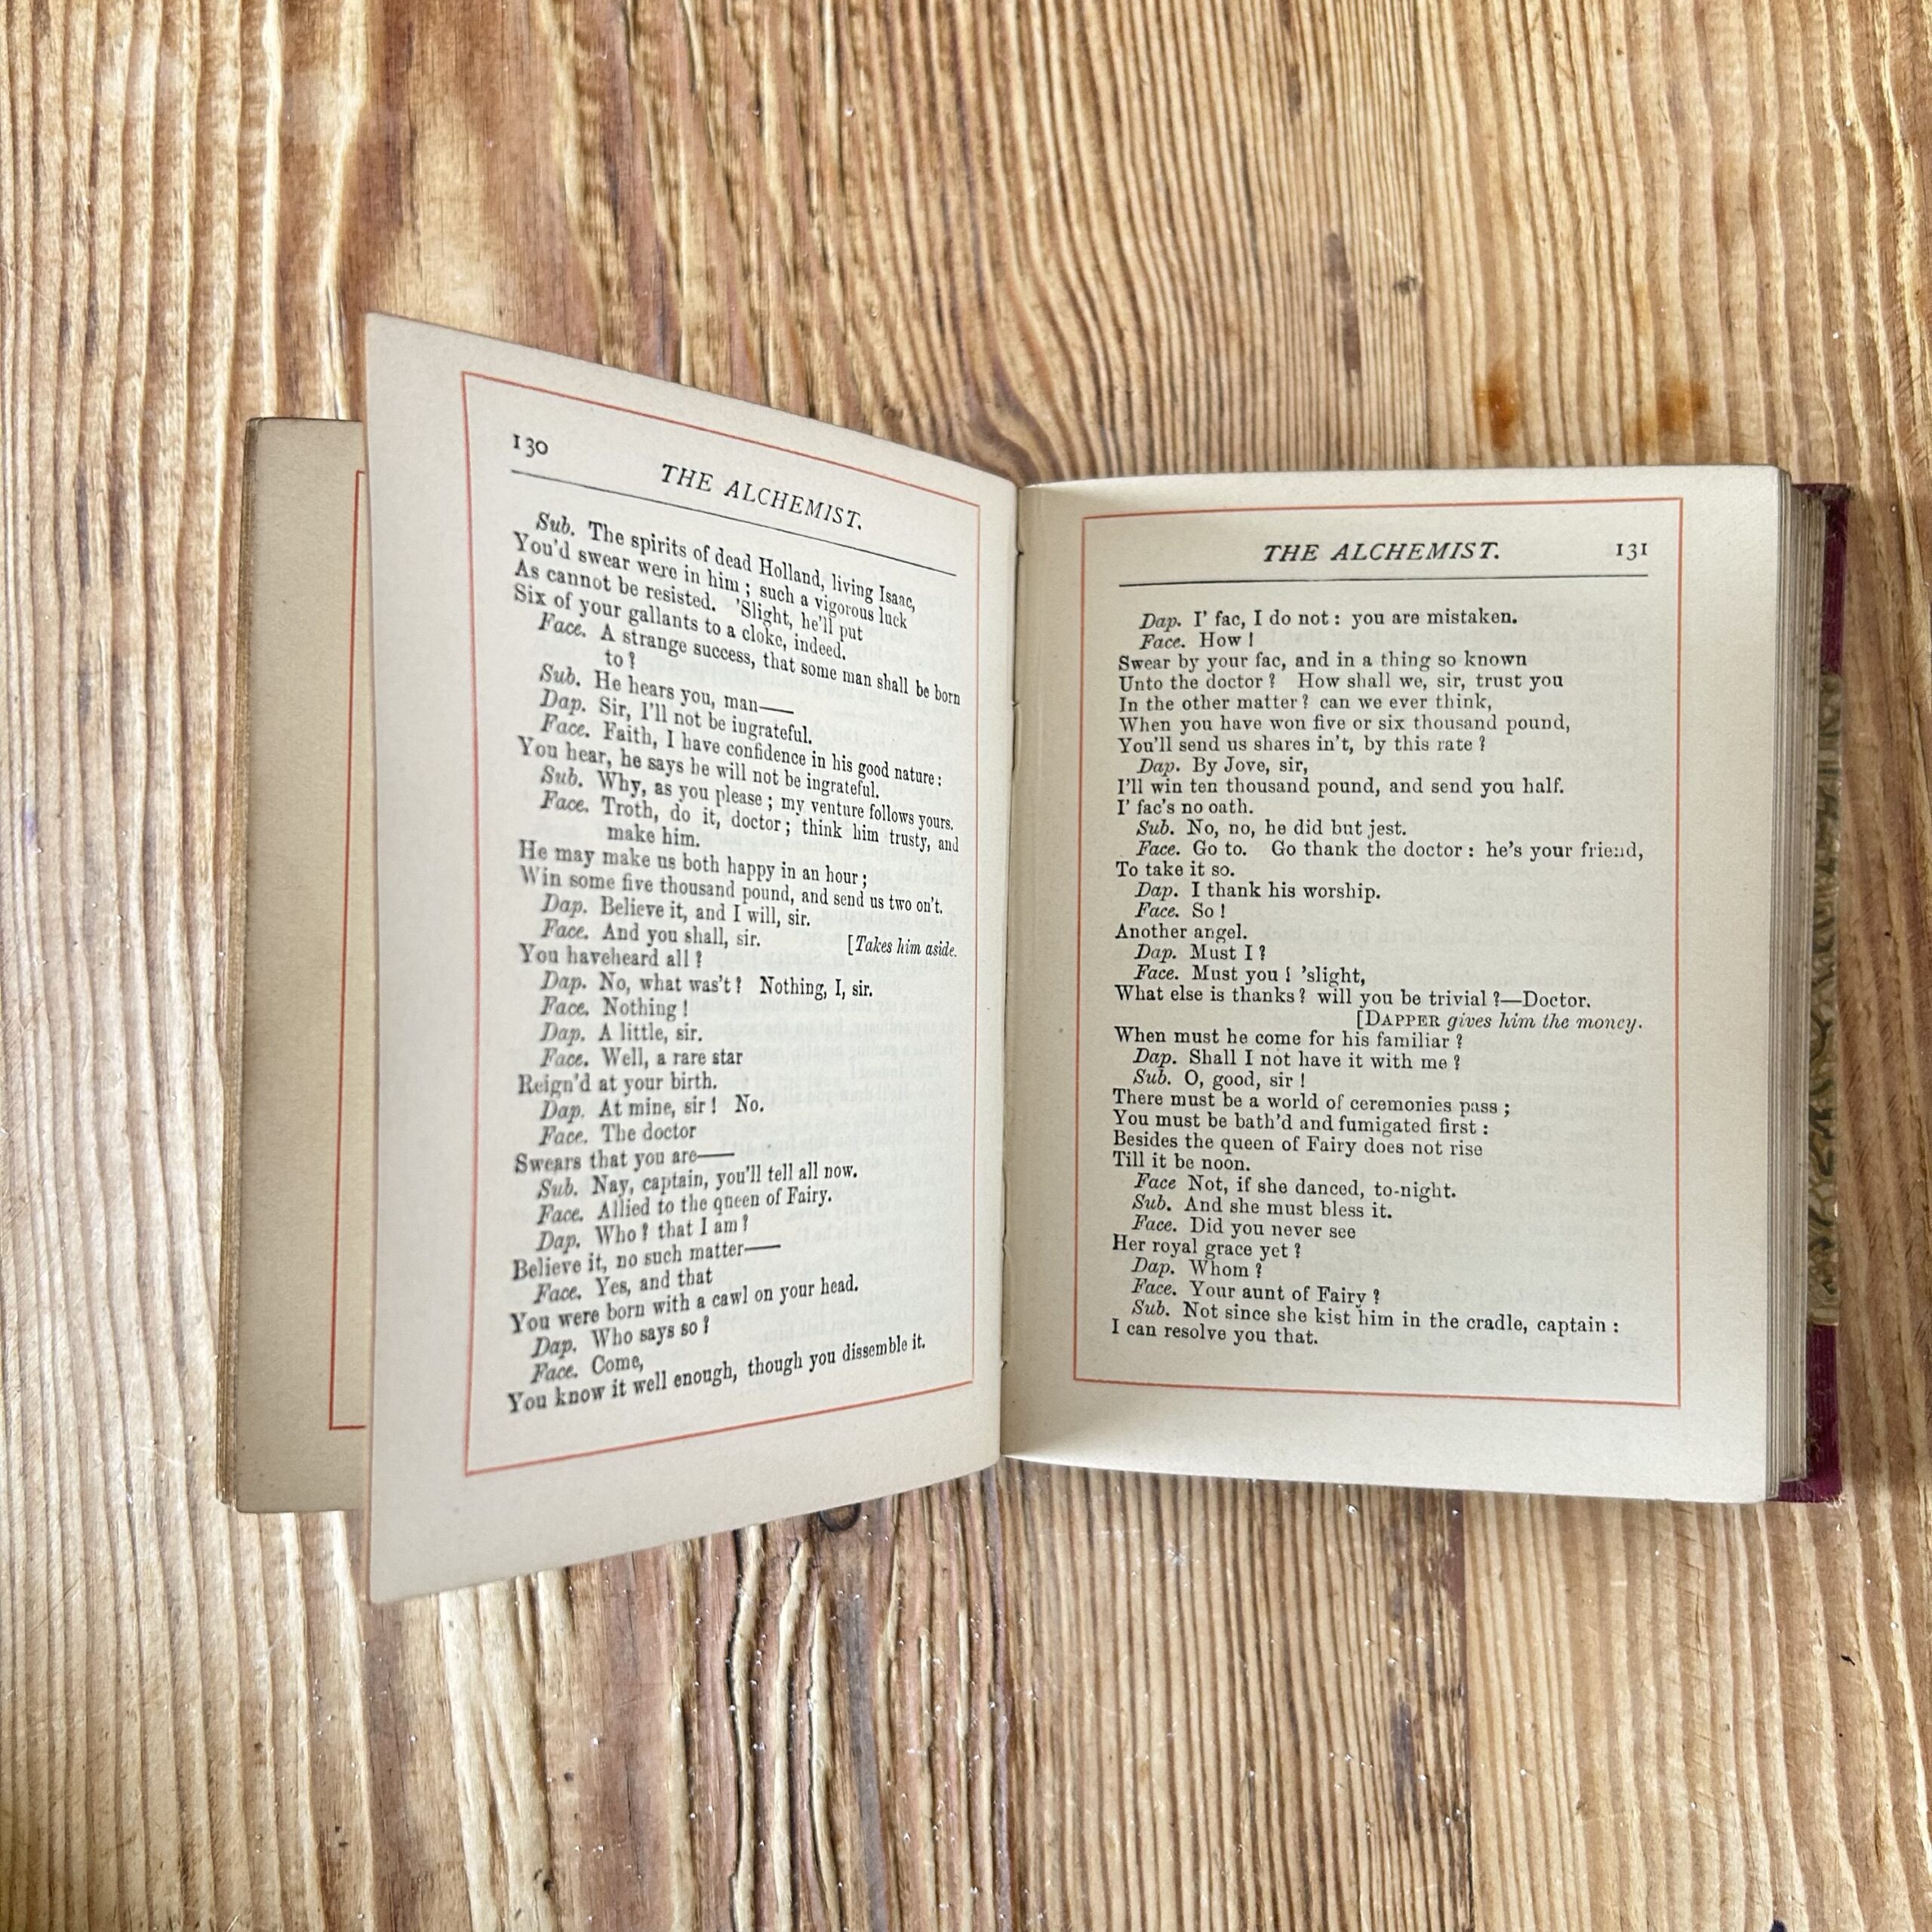 130
THE ALCHEMIST.
Sub. The spirits of dead Holland, living Isaac,
You'd swear were in him ; such a vigorous luck
As cannot be resisted. 'Slight, he'll put
Six of your gallants to a cloke, indeed.
Face. A strange success, that some man shall be born
to ?
Sub. He hears you, man——
Dap. Sir, I'll not be ingrateful.
Face. Faith, I have confidence in his good nature :
You hear, he says he will not be ingrateful.
Sub. Why, as you please ; my venture follows yours.
Face. Troth, do it, doctor ; think him trusty, and
make him.
He may make us both happy in an hour ;
Win some five thousand pound, and send us two on't.
Dap. Believe it, and I will, sir.
Face. And you shall, sir. [Takes him aside.
You haveheard all ?
Dap. No, what was't ? Nothing, I, sir.
Face. Nothing !
Dap. A little, sir.
Face. Well, a rare star
Reign'd at your birth.
Dap. At mine, sir ! No.
Face. The doctor
Swears that you are——
Sub. Nay, captain, you'll tell all now.
Face. Allied to the queen of Fairy.
Dap. Who ? that I am ?
Believe it, no such matter——
Face. Yes, and that
You were born with a cawl on your head.
Dap. Who says so ?
Face. Come,
You know it well enough, though you dissemble it.
THE ALCHEMIST. 131
Dap. I' fac, I do not : you are mistaken.
Face. How !
Swear by your fac, and in a thing so known
Unto the doctor ? How shall we, sir, trust you
In the other matter ? can we ever think,
When you have won five or six thousand pound,
You'll send us shares in't, by this rate ?
Dap. By Jove, sir,
I'll win ten thousand pound, and send you half.
I' fac's no oath.
Sub. No, no, he did but jest.
Face. Go to. Go thank the doctor : he's your friend,
To take it so.
Dap. I thank his worship.
Face. So !
Another angel.
Dap. Must I ?
Face. Must you ! 'slight,
What else is thanks ? will you be trivial ?—Doctor.
[DAPPER gives him the money.
When must he come for his familiar ?
Dap. Shall I not have it with me ?
Sub. O, good, sir !
There must be a world of ceremonies pass ;
You must be bath'd and fumigated first :
Besides the queen of Fairy does not rise
Till it be noon.
Face Not, if she danced, to-night.
Sub. And she must bless it.
Face. Did you never see
Her royal grace yet ?
Dap. Whom ?
Face. Your aunt of Fairy ?
Sub. Not since she kist him in the cradle, captain :
I can resolve you that.